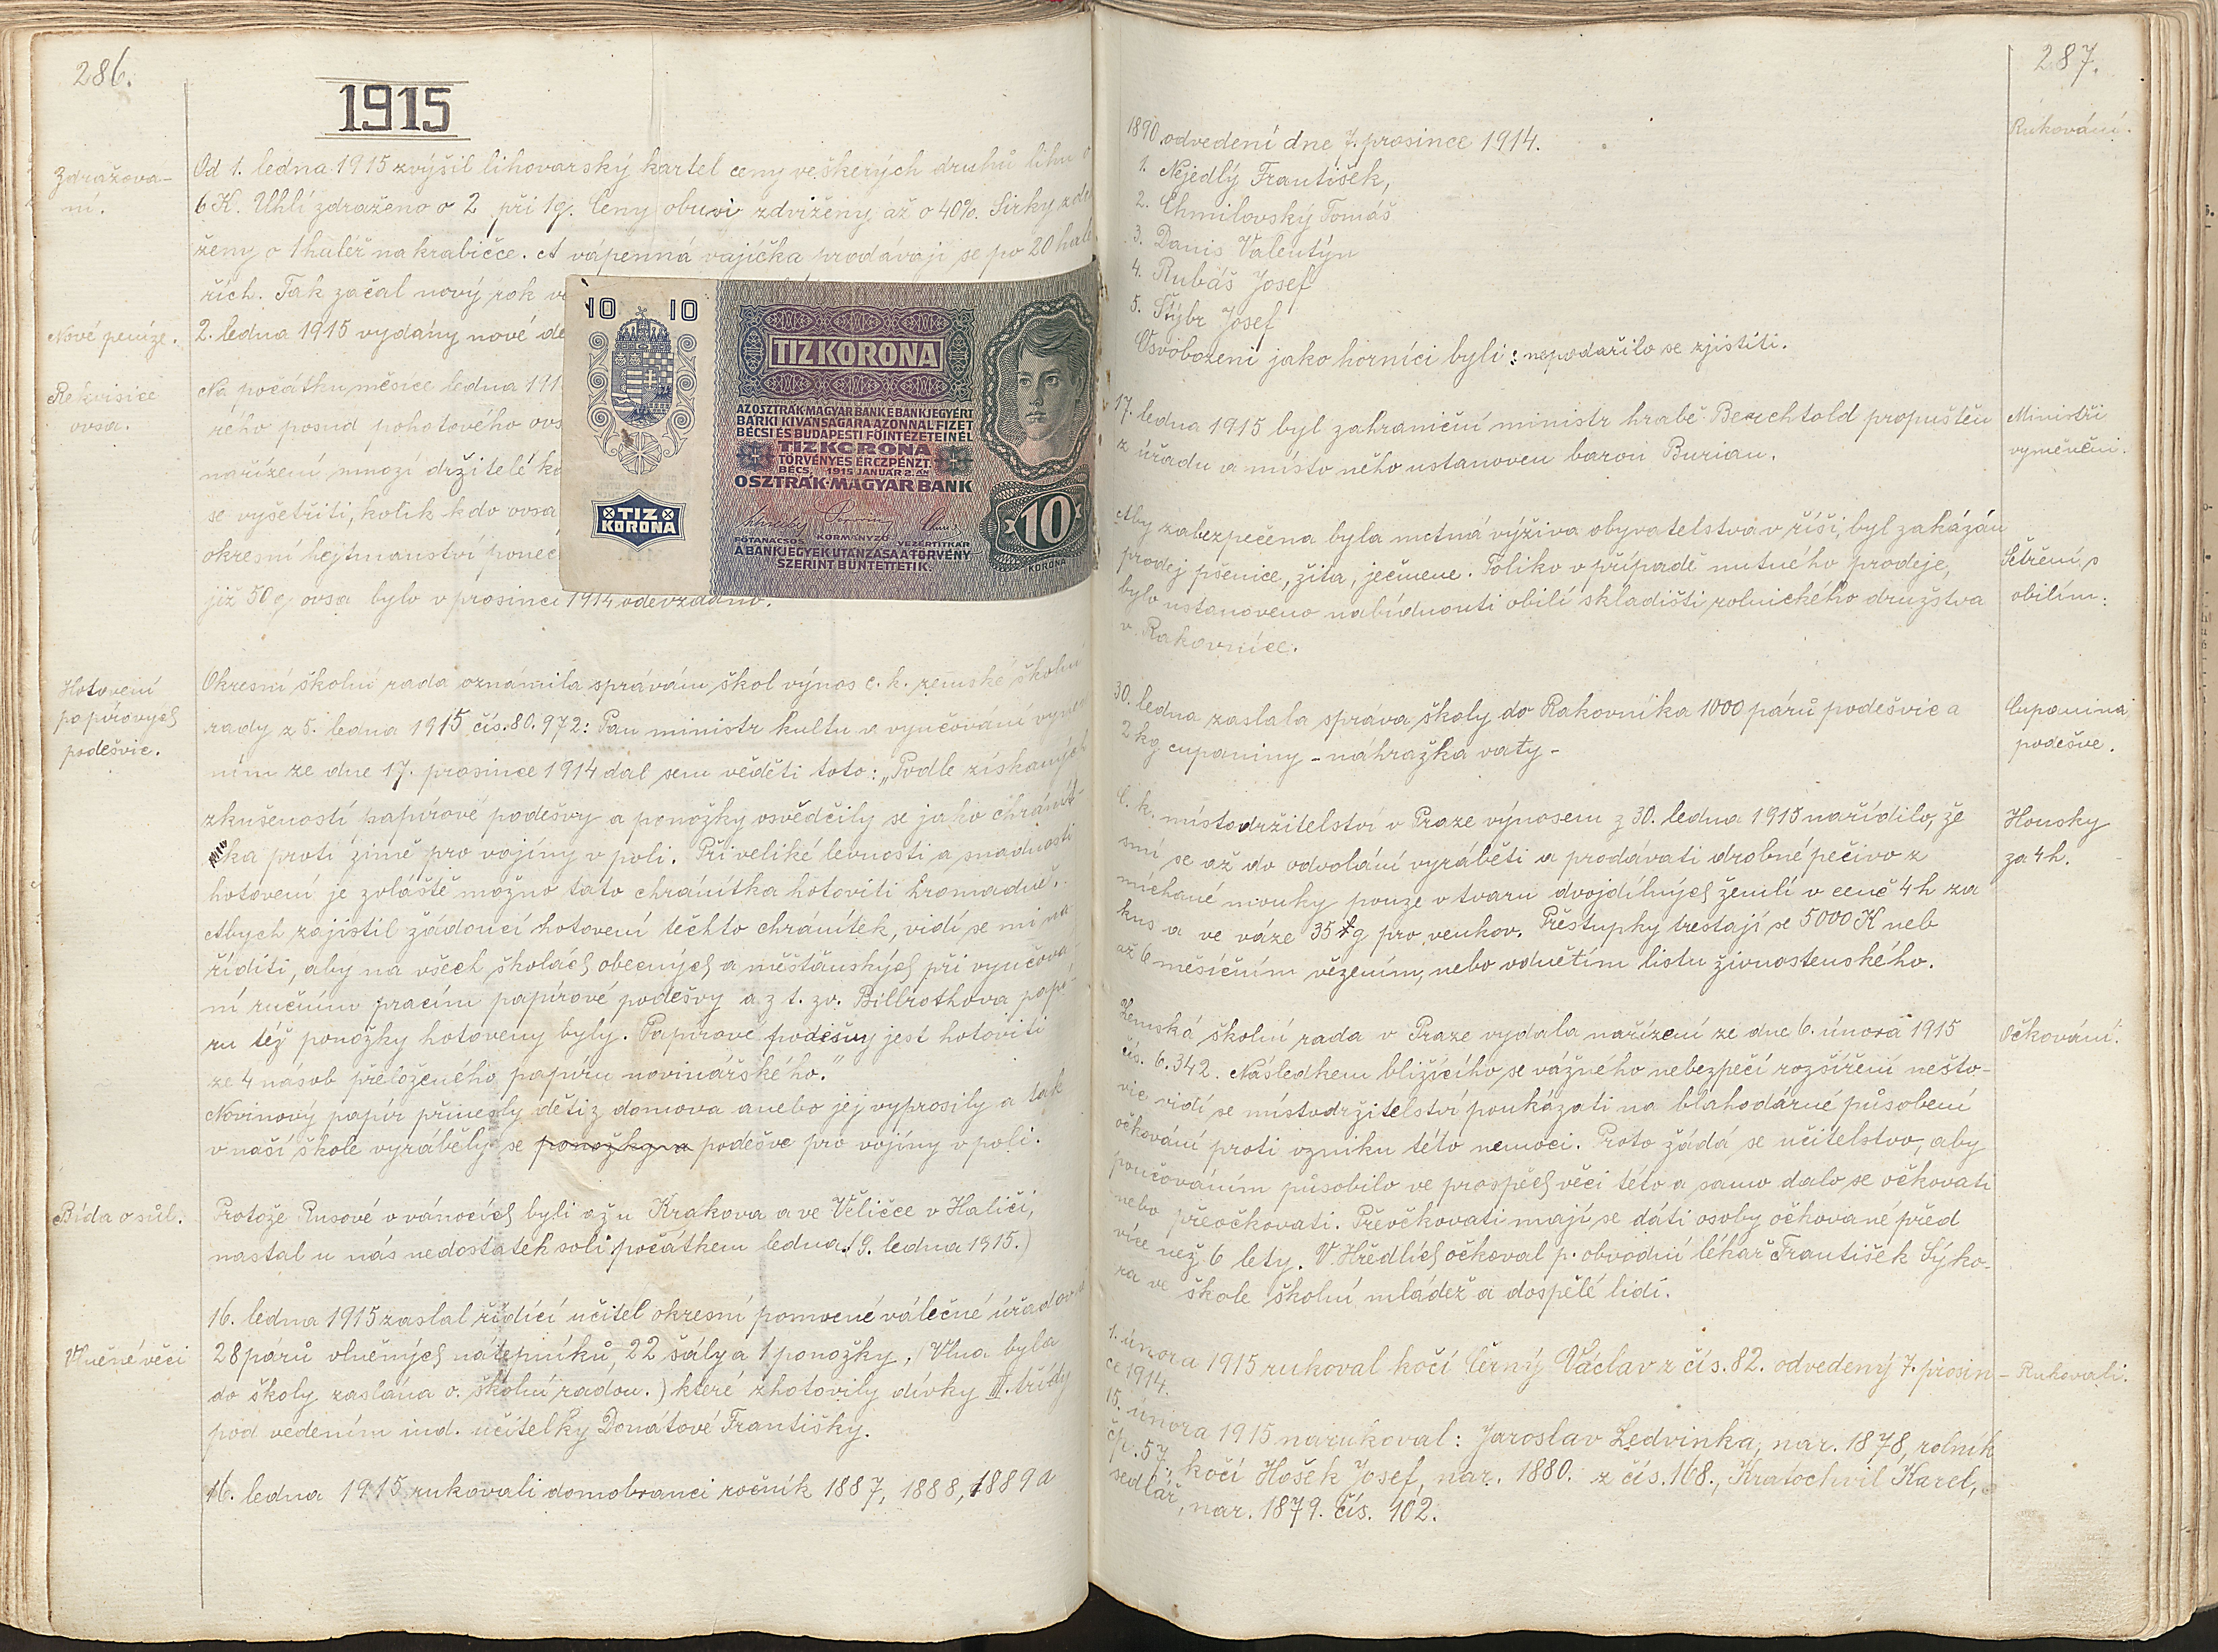 286.
1915
Zdražová-
ní.
Od 1. ledna 1915 zvýšil lihovarský kartel ceny veškerých druhů lihu o
6 K. Uhlí zdraženo o 2 při 1q. Ceny obuvi zdviženy až o 40%. Sirky zdra
ženy o 1 haléř na krabičce. A vápenná vajíčka prodávají se po 20 halé
řích. Tak začal nový rok
Nové peníze.
2. ledna 1915 vydány nové de
Rekvisice
ovsa.
Na počátku měsíce ledna 191
rého posud pohotového ovs
nařízení mnozí držitelé ko
se vyšetřiti, kolik kdo ovsa
okresní hejtmanství poneč
již 50 q ovsa bylo v prosinci 1914 odevzdáno.
10 10
TIZ KORONA
AZ OSZTRÁK-MAGYAR BANK E BANKJEGYÉRT
BÁRKI KÍVÁNSÁGÁRA AZONNAL FIZET
BÉCSI ÉS BUDAPESTI FŐINTÉZETEINÉL
TIZ KORONA
TÖRVÉNYES ÉRCZPÉNZT.
BÉCS, 1915 JANUÁR 2-ÁN
OSZTRÁK-MAGYAR BANK
FŐTANÁCSOS KORMÁNYZÓ VEZÉRTITKÁR
A BANKJEGYEK UTÁNZÁSA A TÖRVÉNY
SZERINT BÜNTETTETIK.
TIZ
KORONA
10
KORONA
Hotovení
papírových
podešvic.
Okresní školní rada oznámila správám škol výnos c. k. zemské školní
rady z 5. ledna 1915 čís. 80.972: Pan ministr kultu a vyučování vynese
ním ze dne 17. prosince 1914 dal sem věděti toto: „Podle získaných
zkušeností papírové podešvy a ponožky osvědčily se jako chránít-
ka proti zimě pro vojíny v poli. Při veliké levnosti a snadnosti
hotovení je zvláště možno tato chránítka hotoviti hromadně.
Abych zajistil žádoucí hotovení těchto chránítek, vidí se mi na
říditi, aby na všech školách obecných a měšťanských při vyučová
ní ručním pracím papírové podešvy a z t. zv. Billrothova papí-
ru též ponožky hotoveny byly. Papírové podešvy jest hotoviti
ze 4 násob přeloženého papíru novinářského."
Novinový papír přinesly děti z domova anebo jej vyprosily a tak
v naší škole vyráběly se ponožky a podešve pro vojíny v poli.
Bída o sůl.
Protože Rusové o vánocích byli až u Krakova a ve Věličce v Haliči,
nastal u nás nedostatek soli počátkem ledna. (9. ledna 1915.)
Vlněné věci
16. ledna 1915 zaslal řídící učitel okresní pomocné válečné úřadovně
28 párů vlněných nátepníků, 22 šály a 1 ponožky, (Vlna byla
do školy zaslána o. školní radou.) které zhotovily dívky III. třídy
pod vedením ind. učitelky Donátové Františky.
16. ledna 1915 rukovali domobranci ročník 1887, 1888, 1889 a
287.
Rukování.
1890 odvedení dne 7. prosince 1914.
1. Nejedlý František,
2. Chmilovský Tomáš
3. Danis Valentýn
4. Rubáš Josef
5. Štýbr Josef
Osvobozeni jako horníci byli: nepodařilo se zjistiti.
Ministři
vyměněni.
17. ledna 1915 byl zahraniční ministr hrabě Berchtold propuštěn
z úřadu a místo něho ustanoven baron Burian.
Šetření s
obilím.
Aby zabezpečena byla nutná výživa obyvatelstva v říši, byl zakázán
prodej pšenice, žita, ječmene. Toliko v případě nutného prodeje,
bylo ustanoveno nabídnouti obilí skladišti rolnického družstva
v Rakovníce.
Cupanina
podešve.
30. ledna zaslala správa školy do Rakovníka 1000 párů podešvic a
2 kg cupaniny - náhražka vaty -
Housky
za 4 h.
C. k. místodržitelství v Praze výnosem z 30. ledna 1915 nařídilo, že
smí se až do odvolání vyráběti a prodávati drobné pečivo z
míchané mouky pouze v tvaru dvojdílných žemlí v ceně 4 h za
kus a ve váze 35 g pro venkov. Přestupky trestají se 5000 K neb
až 6 měsíčním vězením, nebo odnětím listu živnostenského.
Očkování.
Zemská školní rada v Praze vydala nařízení ze dne 6. února 1915
čís. 6.342. Následkem blížícího se vážného nebezpečí rozšíření nešto-
vic vidí se místodržitelství poukázati na blahodárné působení
očkování proti vzniku této nemoci. Proto žádá se učitelstvo, aby
poučováním působilo ve prospěch věci této a samo dalo se očkovati
nebo přeočkovati. Přeočkovati mají se dáti osoby očkované před
více než 6 lety. V Hředlích očkoval p. obvodní lékař František Sýko-
ra ve škole školní mládež a dospělé lidi.
Rukovali.
1. února 1915 rukoval kočí Černý Václav z čís. 82. odvedený 7. prosin-
ce 1914.
15. února 1915 narukoval: Jaroslav Ledvinka, nar. 1878, rolník
čp. 57., kočí Hošek Josef, nar. 1880. z čís. 168., Kratochvíl Karel,
sedlář, nar. 1879. čís. 102.